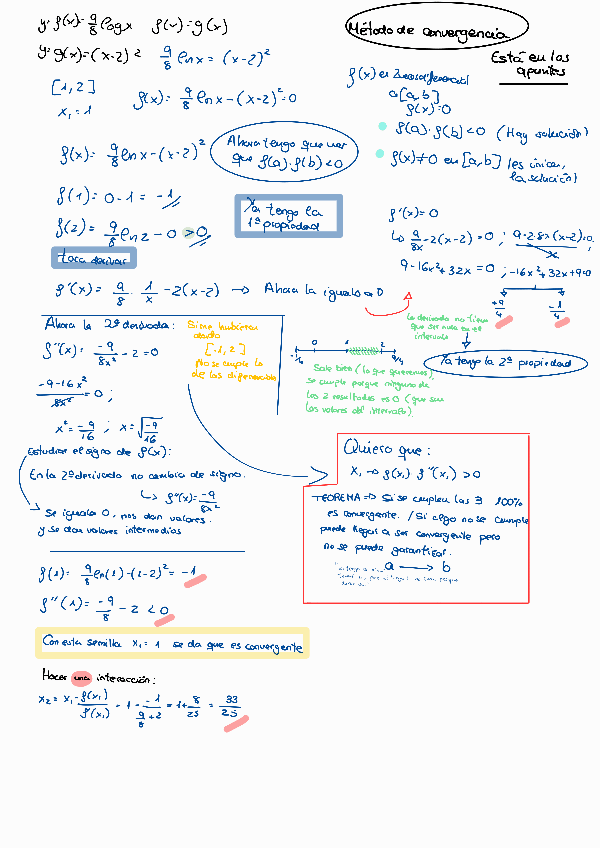 y=f(x)=9/8 log x f(x)=g(x)
y=g(x)=(x-2)² 9/8 ln x = (x-2)²
[1,2]
x₁=1
f(x)= 9/8 ln x-(x-2)²=0
f(x)= 9/8 ln x-(x-2)²
Ahora tengo que ver
que f(a)·f(b)<0
f(1)=0-1=-1
f(2)= 9/8 ln2-0>0
Ya tengo la
1ª propiedad
Toca derivar
f'(x)= 9/8 · 1/x -2(x-2) → Ahora la igualo a 0
Método de convergencia
Está en los
apuntes
f(x) es 2 veces diferenciable
[a,b]
f(x)=0
f(a)·f(b)<0 (Hay solución)
f(x)≠0 en [a,b] (es única,
la solución)
f'(x)=0
↳ 9/8x -2(x-2)=0; 9-2·8x(x-2)=0;
9-16x²+32x=0; -16x²+32x+9=0
+9/4 -1/4
La derivada no tiene
que ser nula en el
intervalo
Ya tengo la 2ª propiedad
-1/4 0 1 2 9/4
Sale bien (lo que queremos)
se cumple porque ninguno de
los 2 resultados es 0 (que son
los valores del intervalo).
Ahora la 2ª derivada:
f''(x)= -9/8x² -2=0
-9-16x²/8x² =0;
x²= -9/16; x=√-9/16
Si me hubieran
dado
[-1,2]
no se cumple lo
de los diferenciable
Estudiar el signo de f(x):
En la 2ª derivada no cambia de signo.
↳ f''(x)= -9/8x²
Se iguala 0, nos dan valores.
y se dan valores intermedios
Quiero que:
x₁ → f(x₁) f''(x₁)>0
TEOREMA ⇒ Si se cumplen las 3 100%
es convergente. /Si algo no se cumple
puede llegar a ser convergente pero
no se puede garantizar.
a → b
f(1)= 9/8 ln(1)-(1-2)²=-1
f''(1)= -9/8 -2<0
Con esta semilla x₁=1 se da que es convergente
Hacer una interacción:
x₂=x₁- f(x₁)/f'(x₁) = 1- -1/(9/8+2) = 1+ 8/25 = 33/25